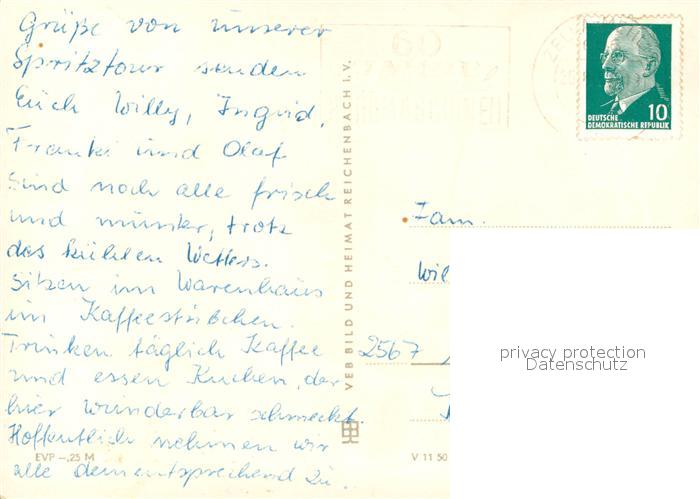 Grüße von unserer
Spritztour senden
Euch Willy, Ingrid,
Franki und Olaf
Sind noch alle frisch
und munter, trotz
des kühlen Wetters.
Sitzen im Warenhaus
im Kaffeestübchen.
Trinken täglich Kaffee
und essen Kuchen, der
hier wunderbar schmeckt.
Hoffentlich nehmen wir
alle dementsprechend zu.
EVP –,25 M
VEB BILD UND HEIMAT REICHENBACH I. V.
V 11 50
60
10
DEUTSCHE
DEMOKRATISCHE REPUBLIK
Fam.
Wil
2567
privacy protection
Datenschutz